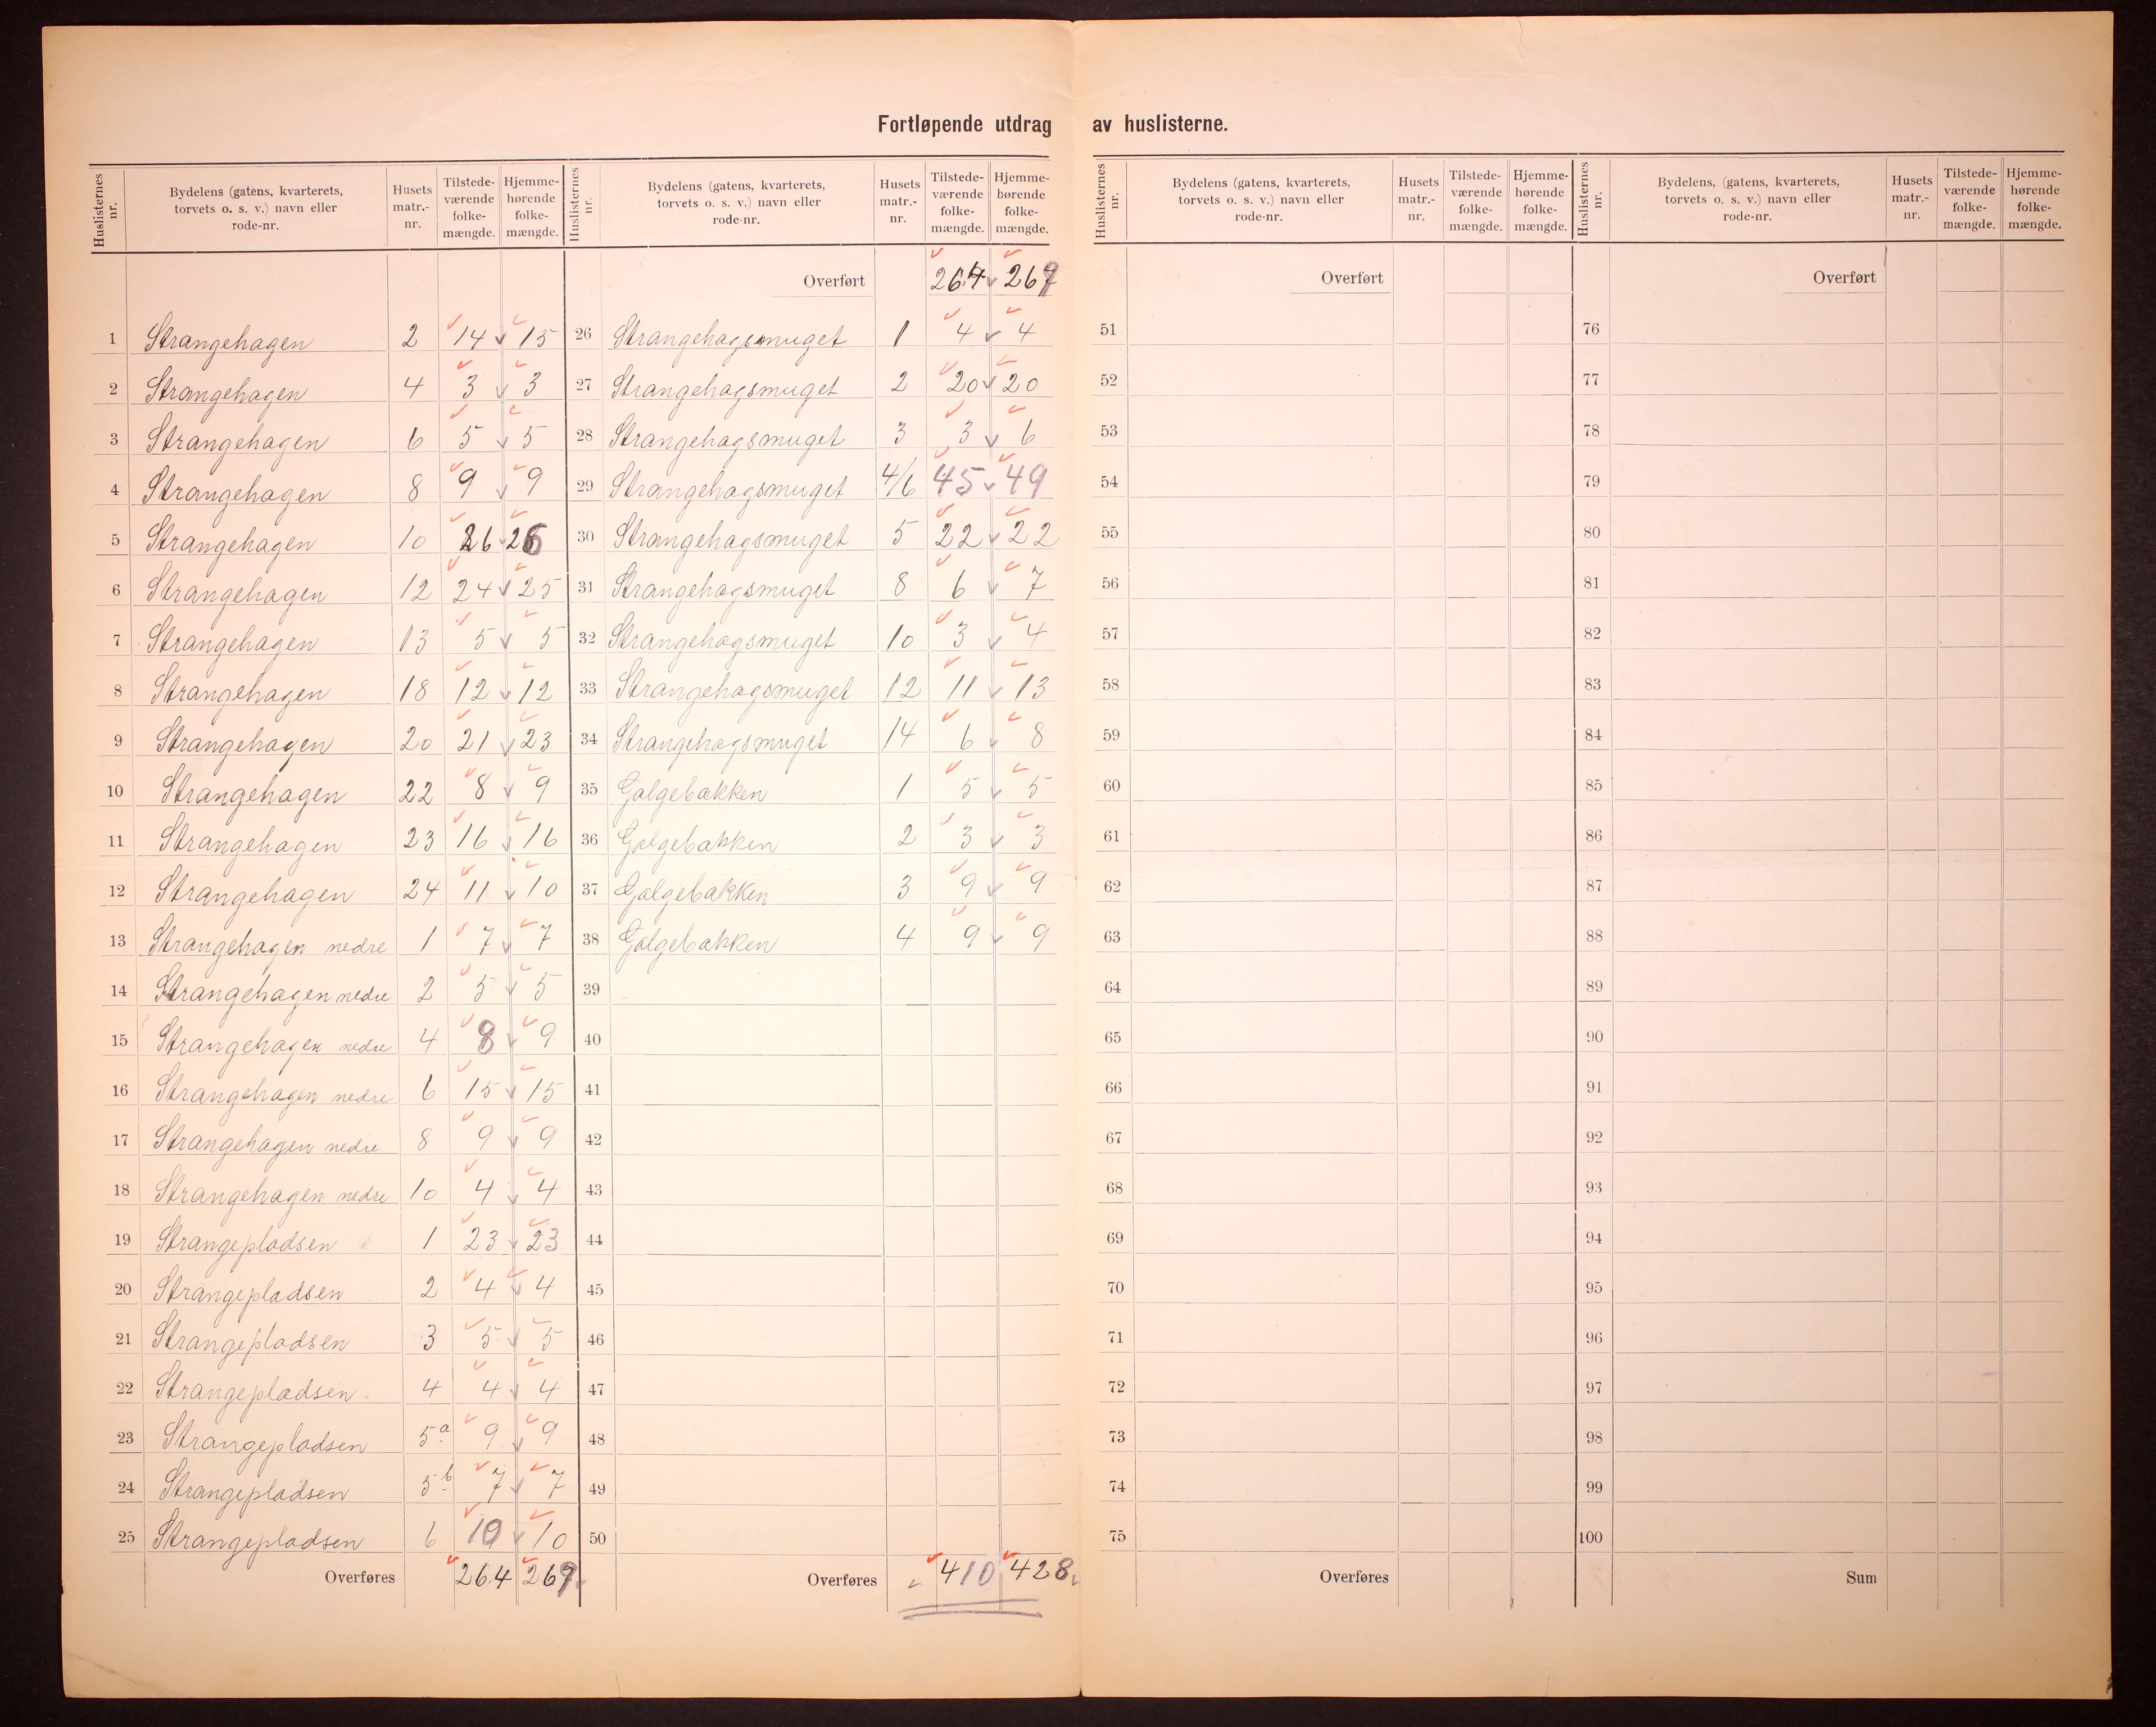 Fortløpende utdrag av huslisterne.
Huslisternes nr. | Bydelens (gatens, kvarterets, torvets o. s. v.) navn eller rode-nr. | Husets matr.-nr. | Tilstede-værende folke-mængde. | Hjemme-hørende folke-mængde.
1 Strangehagen 2 14 15
2 Strangehagen 4 3 3
3 Strangehagen 6 5 5
4 Strangehagen 8 9 9
5 Strangehagen 10 26 26
6 Strangehagen 12 24 25
7 Strangehagen 13 5 5
8 Strangehagen 18 12 12
9 Strangehagen 20 21 23
10 Strangehagen 22 8 9
11 Strangehagen 23 16 16
12 Strangehagen 24 11 10
13 Strangehagen nedre 1 7 7
14 Strangehagen nedre 2 5 5
15 Strangehagen nedre 4 8 9
16 Strangehagen nedre 6 15 15
17 Strangehagen nedre 8 9 9
18 Strangehagen nedre 10 4 4
19 Strangepladsen 1 23 23
20 Strangepladsen 2 4 4
21 Strangepladsen 3 5 5
22 Strangepladsen 4 4 4
23 Strangepladsen 5a 9 9
24 Strangepladsen 5b 7 7
25 Strangepladsen 6 10 10
Overføres 264 269
Huslisternes nr. | Bydelens (gatens, kvarterets, torvets o. s. v.) navn eller rode-nr. | Husets matr.-nr. | Tilstede-værende folke-mængde. | Hjemme-hørende folke-mængde.
Overført 264 269
26 Strangehagsmuget 1 4 4
27 Strangehagsmuget 2 20 20
28 Strangehagsmuget 3 3 6
29 Strangehagsmuget 4/6 45 49
30 Strangehagsmuget 5 22 22
31 Strangehagsmuget 8 6 7
32 Strangehagsmuget 10 3 4
33 Strangehagsmuget 12 11 13
34 Strangehagsmuget 14 6 8
35 Galgebakken 1 5 5
36 Galgebakken 2 3 3
37 Galgebakken 3 9 9
38 Galgebakken 4 9 9
39
40
41
42
43
44
45
46
47
48
49
50
Overføres 410 428
Huslisternes nr. | Bydelens (gatens, kvarterets, torvets o. s. v.) navn eller rode-nr. | Husets matr.-nr. | Tilstede-værende folke-mængde. | Hjemme-hørende folke-mængde.
Overført
51
52
53
54
55
56
57
58
59
60
61
62
63
64
65
66
67
68
69
70
71
72
73
74
75
Overføres
Huslisternes nr. | Bydelens, (gatens, kvarterets, torvets o. s. v.) navn eller rode-nr. | Husets matr.-nr. | Tilstede-værende folke-mængde. | Hjemme-hørende folke-mængde.
Overført
76
77
78
79
80
81
82
83
84
85
86
87
88
89
90
91
92
93
94
95
96
97
98
99
100
Sum